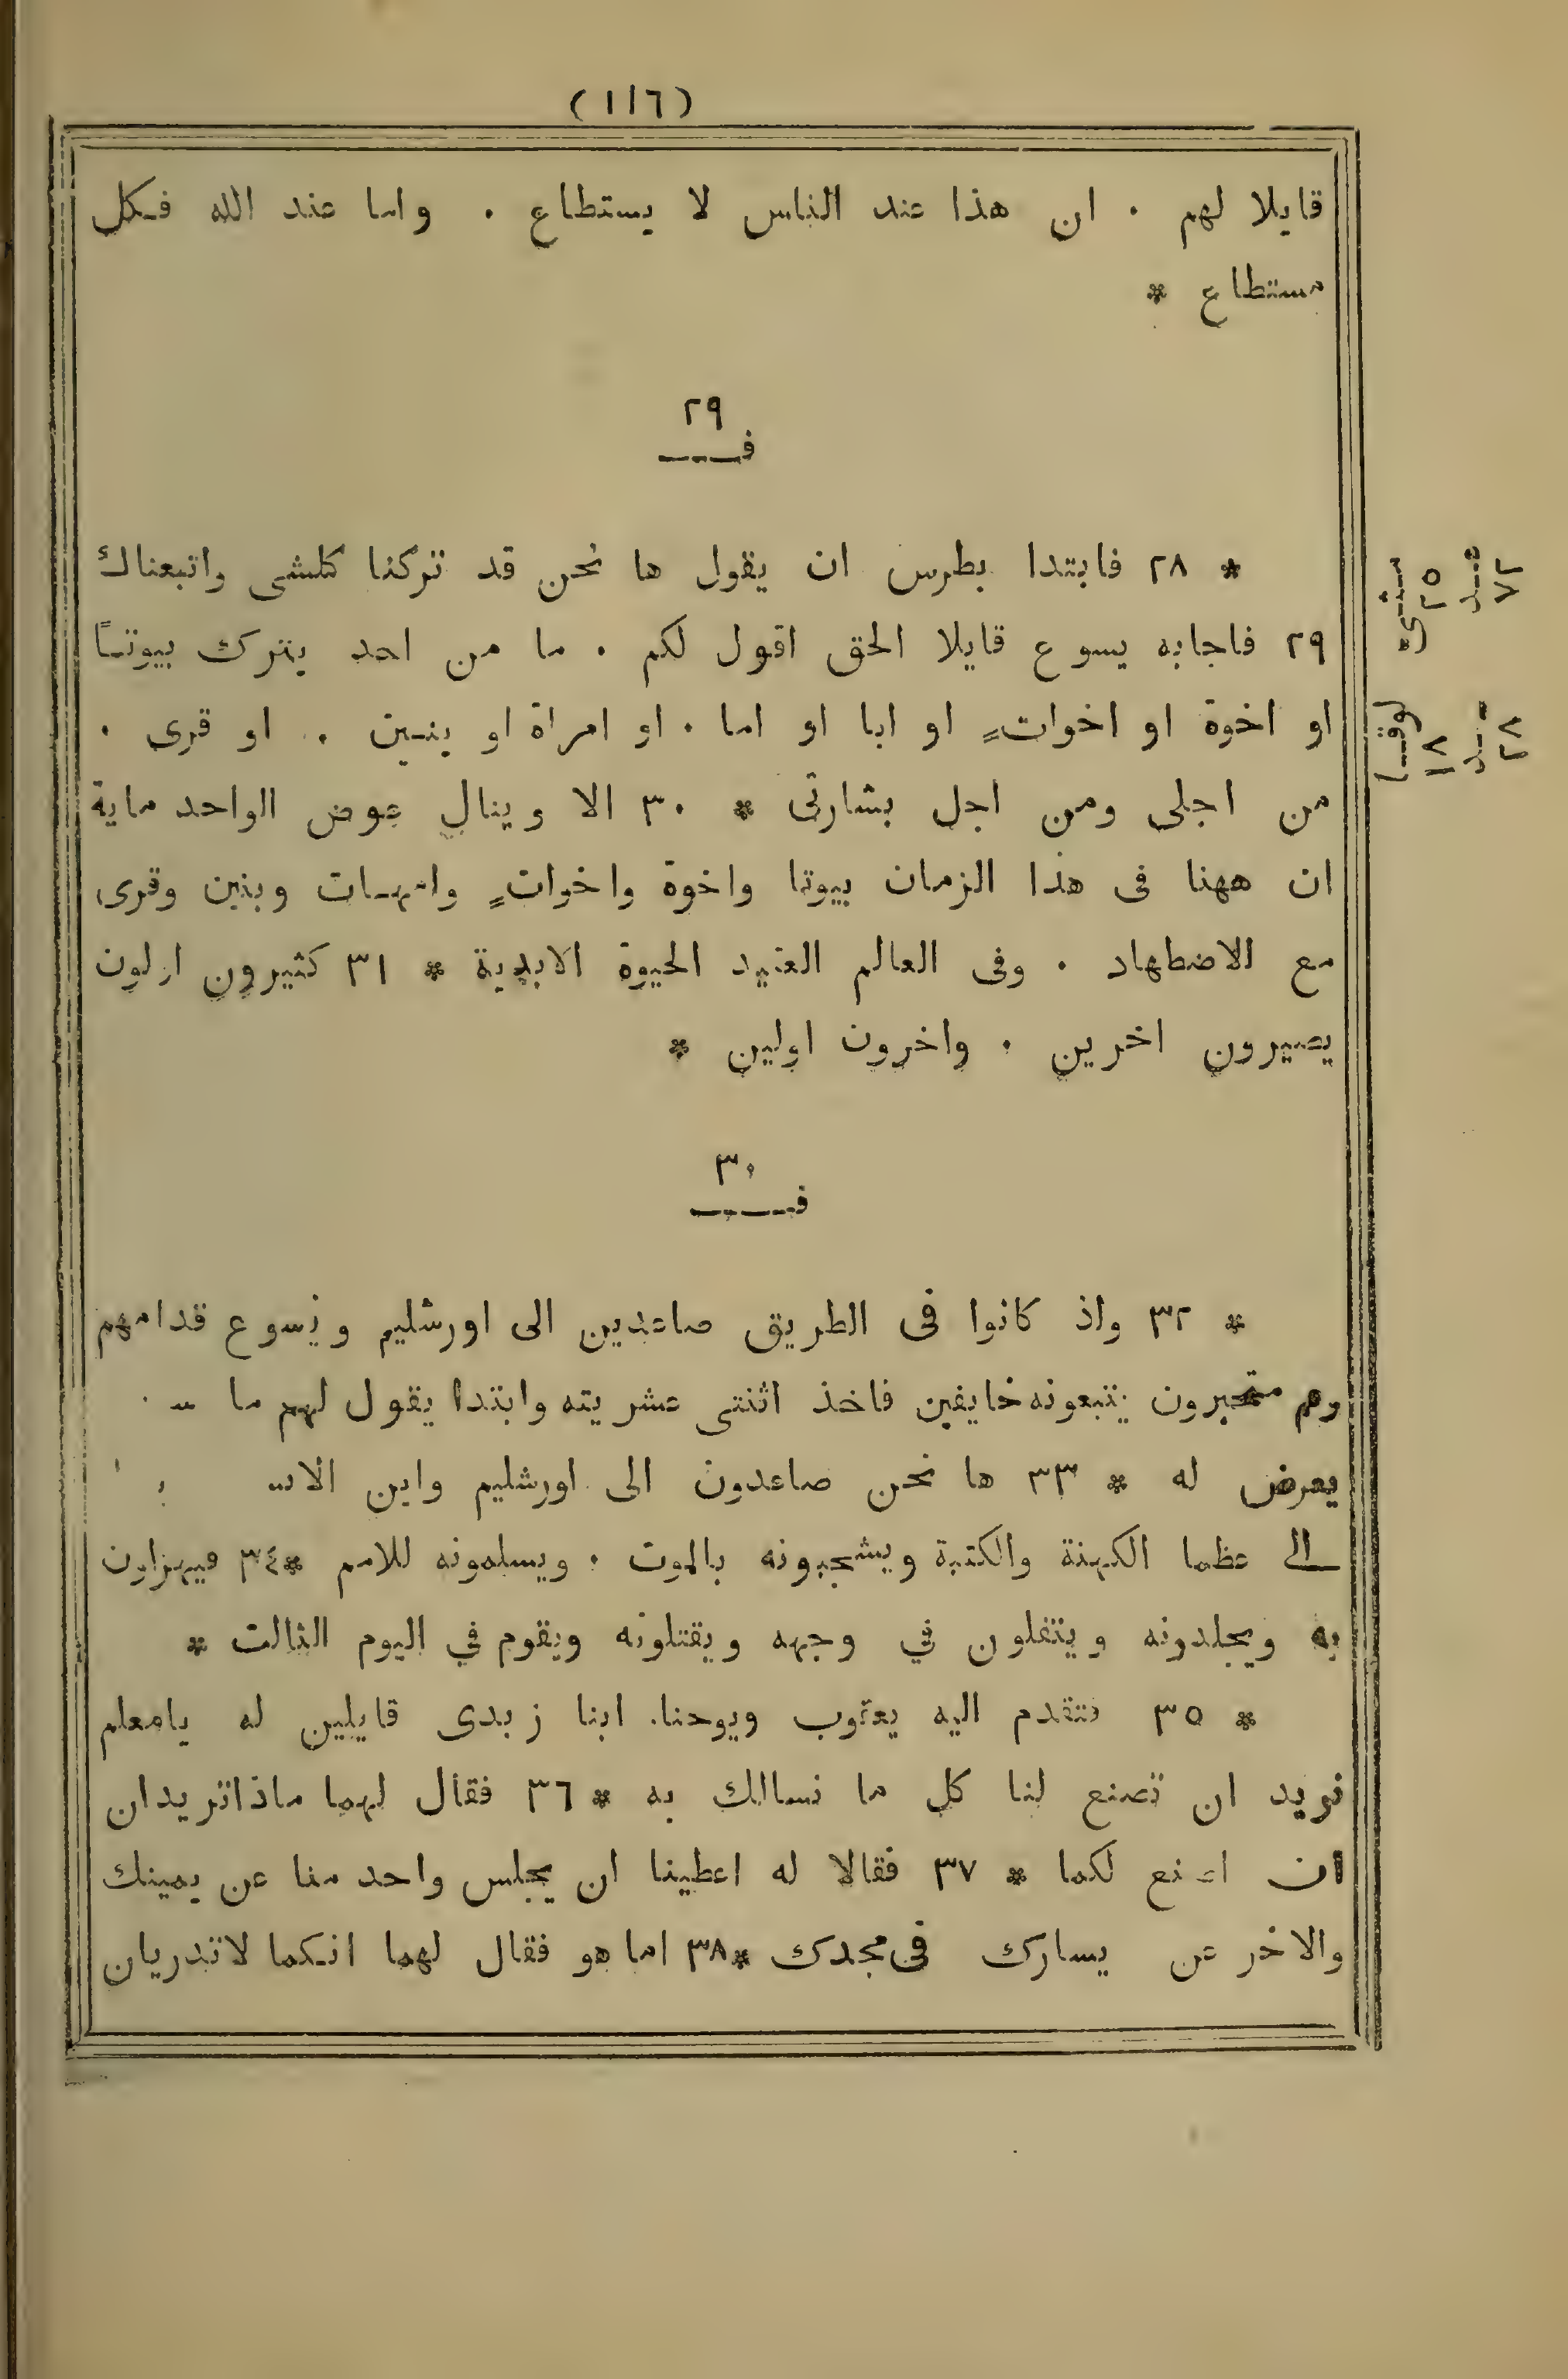 (١١٦)
قايلا لهم . ان هذا عند الناس لا يستطاع . واما عند الله فكل
مستطاع *
٢٩
فـ
* ٢٨ فابتدا بطرس ان يقول ها نحن قد تركنا كلشى واتبعناك
٢٩ فاجابه يسوع قايلا الحق اقول لكم . ما من احد يترك بيوتاً
او اخوة او اخواتٍ او ابا او اما . او امراة او بنين . او قرى .
من اجلى ومن اجل بشارتى * ٣٠ الا وينال عوض الواحد ماية
ان ههنا فى هذا الزمان بيوتا واخوة واخواتٍ وامهات وبنين وقرى
مع الاضطهاد . وفى العالم العتيد الحيوة الابدية * ٣١ كثيرون اولون
يصيرون اخرين . واخرون اولين *
٣٠
فـ
* ٣٢ واذ كانوا فى الطريق صاعدين الى اورشليم ويسوع قدامهم
وهم متحيرون يتبعونه خايفين فاخذ اثنتى عشريته وابتدا يقول لهم ما
يعرض له * ٣٣ ها نحن صاعدون الى اورشليم وابن
الى عظما الكهنة والكتبة ويشجبونه بالموت . ويسلمونه للامم * ٣٤ فيهزاون
به ويجلدونه ويتفلون في وجهه ويقتلونه ويقوم في اليوم الثالت *
* ٣٥ فتقدم اليه يعقوب ويوحنا. ابنا زبدى قايلين له يامعلم
نريد ان تصنع لنا كل ما نسالك به * ٣٦ فقال لهما ماذاتريدان
ان اصنع لكما * ٣٧ فقالا له اعطينا ان يجلس واحد منا عن يمينك
والاخر عن يسارك فى مجدك * ٣٨ اما هو فقال لهما انكما لاتدريان
٢٥
٧٢
لوقا
١٨
٢٨